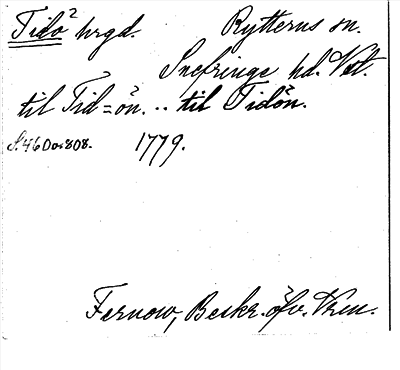 Tidö² hrgd. Rytterns sn.
Snefringe hd. Vstl.
til Tid=ön. .. til Tidön.
S.46 Do.s808. 1779.
Fernow, Beskr. öfv. Vrm.